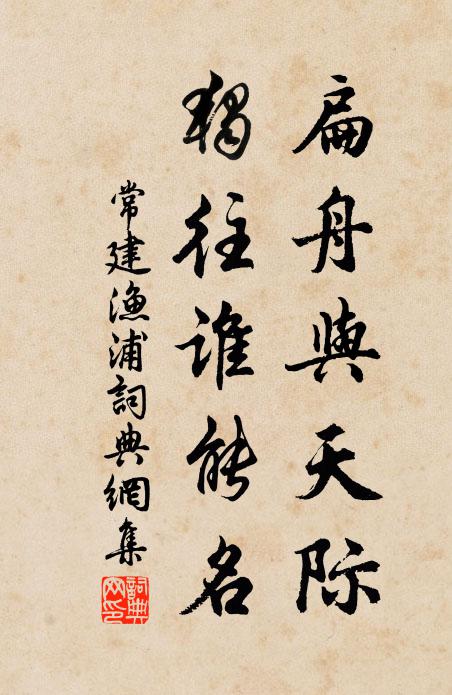 扁舟與天際
獨往誰能名
常建漁浦詞典網集
詞典
网印